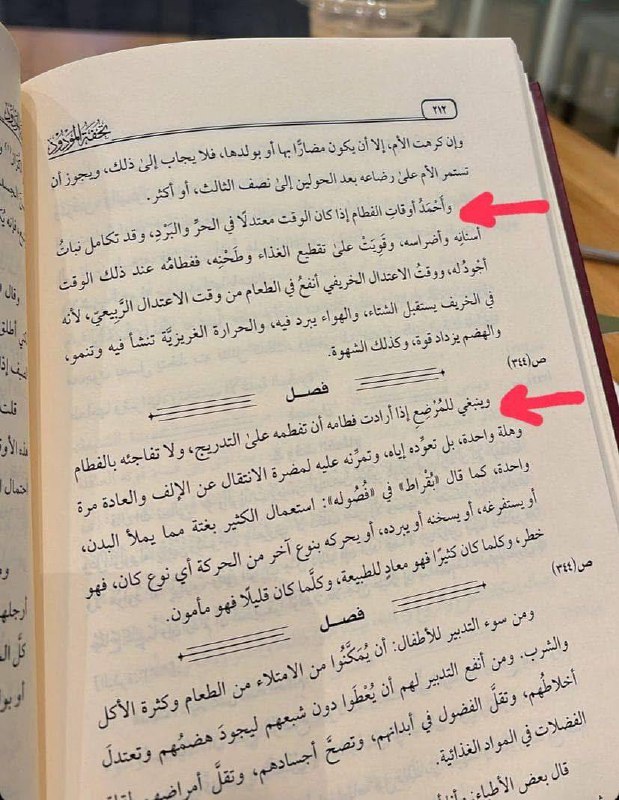 ٢١٢
تحفة المودود
وإن كرهت الأم، إلا أن يكون مضارًّا بها أو بولدها، فلا يجاب إلىٰ ذلك، ويجوز أن
تستمر الأم علىٰ رضاعه بعد الحولين إلىٰ نصف الثالث، أو أكثر.
وأَحْمَدُ أوقاتِ الفطام إذا كان الوقت معتدلًا في الحرِّ والبَرْدِ، وقد تكامل نباتُ
أسنانِه وأضراسه، وقَوِيَتْ علىٰ تقطيع الغذاء وطَحْنِه، ففطامُه عند ذلك الوقت
أجْودُ له، ووقتُ الاعتدال الخريفي أنفعُ في الطعام من وقت الاعتدال الرَّبِيعيّ، لأنه
في الخريف يستقبل الشتاء، والهواء يبرد فيه، والحرارة الغريزيَّة تنشأ فيه وتنمو،
والهضم يزداد قوة، وكذلك الشهوة.
ص(٣٤٤)
فصل
وينبغي للمُرْضِعِ إذا أرادت فطامه أن تفطمه علىٰ التدريج، ولا تفاجئه بالفطام
وهلة واحدة، بل تعوِّده إياه، وتمرِّنه عليه لمضرة الانتقال عن الإلف والعادة مرة
واحدة، كما قال «بُقْراط» في «فُصُوله»: استعمال الكثير بغتة مما يملأ البدن،
أو يستفرغه، أو يسخنه أو يبرده، أو يحركه بنوع آخر من الحركة أي نوع كان، فهو
خطر، وكلما كان كثيرًا فهو معادٍ للطبيعة، وكلَّما كان قليلًا فهو مأمون.
ص(٣٤٤)
فصل
ومن سوء التدبير للأطفال: أن يُمَكَّنُوا من الامتلاء من الطعام وكثرة الأكل
والشرب. ومن أنفع التدبير لهم أن يُعْطَوا دون شبعهم ليجودَ هضمُهم وتعتدلَ
أخلاطُهم، وتقلَّ الفضول في أبدانهم، وتصحَّ أجسادهم، وتقلَّ أمراضهم
الفضلات في المواد الغذائية.
قال بعض الأطباء: